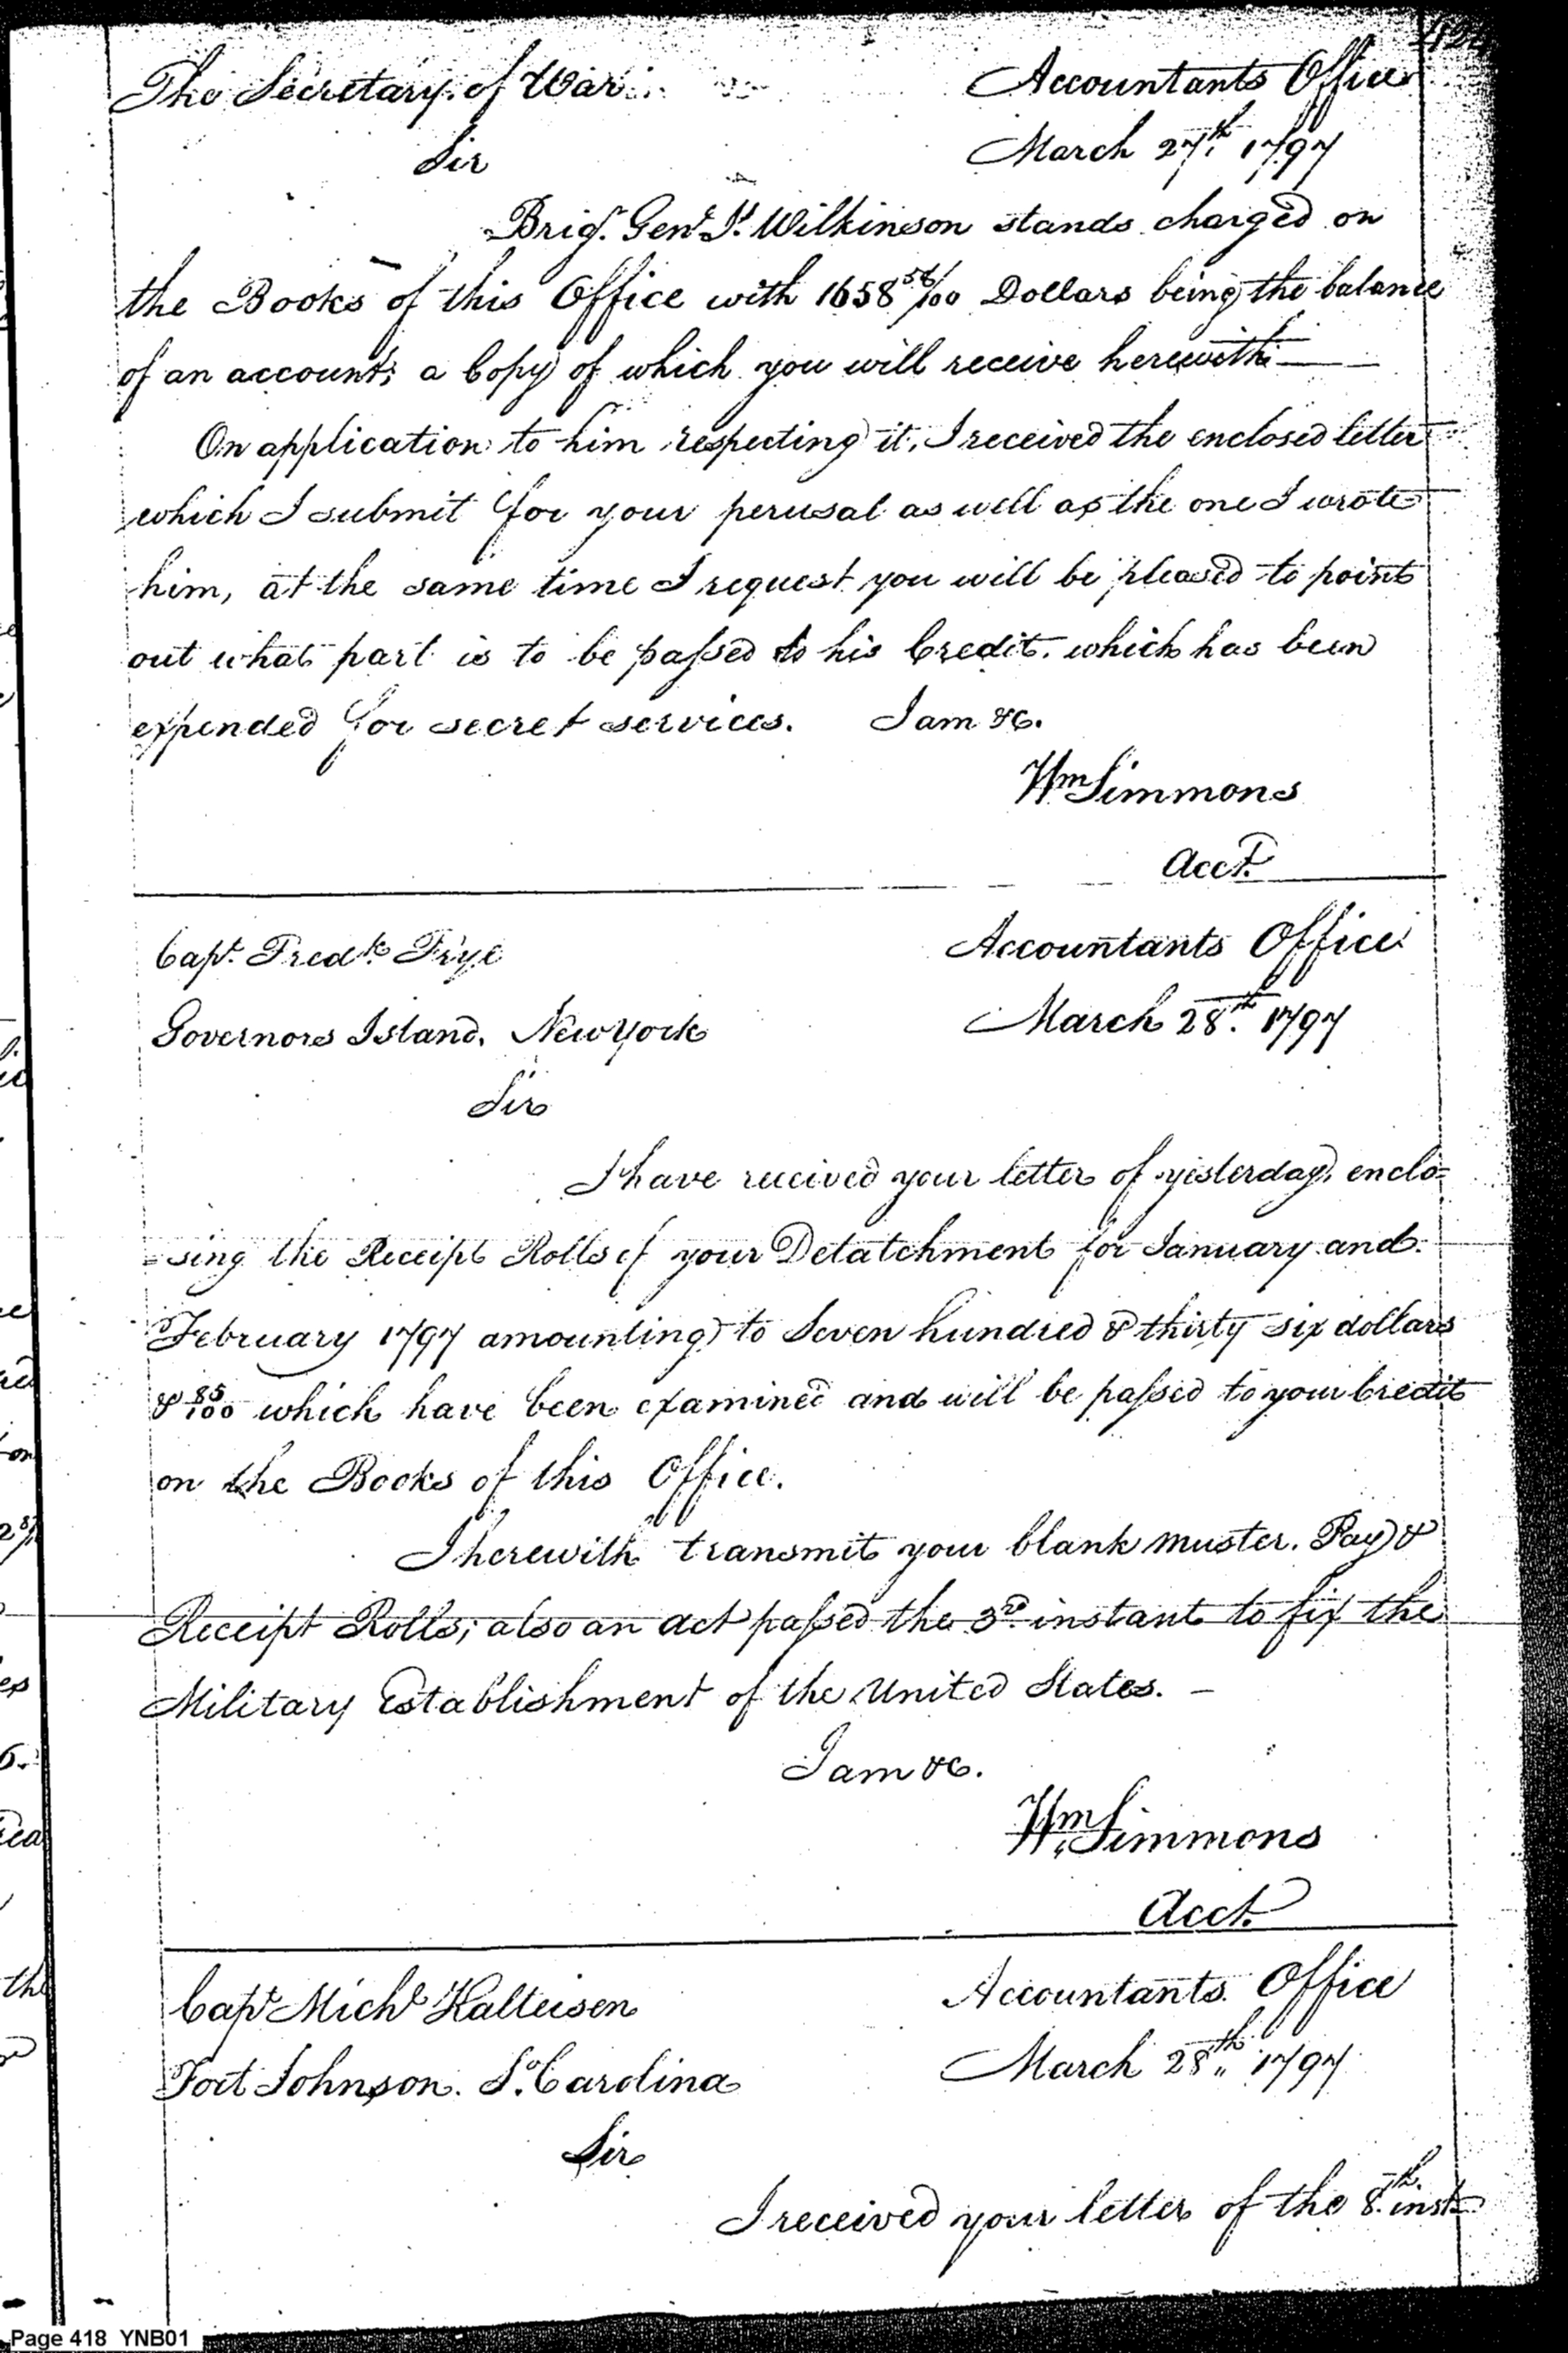 The Secretary of War Accountants Office
Sir March 27th. 1797
Brigr. Genl. Js. Wilkinson stands charged on
the Books of this Office with 1658 56/100 Dollars being the balance
of an account; a Copy of which you will receive herewith
On application to him respecting it, I received the enclosed letter
which I submit for your perusal as well as the one I wrote
him, at the same time I request you will be pleased to point
out what part is to be passed to his Credit. which has been
expended for secret services. I am &c.
Wm Simmons
Acct.
Capt. Fredk. Frye Accountants Office
Governors Island. New York March 28th. 1797
Sir
I have received your letter of yesterday, enclo=
=sing the Receipt Rolls of your Detatchment for January and
February 1797 amounting to Seven hundred & thirty six dollars
& 85/100 which have been examined and will be passed to your Credit
on the Books of this Office.
I herewith transmit your blank muster. Pay &
Receipt Rolls; also an act passed the 3rd. instant to fix the
Military Establishment of the United States. —
I am &c.
Wm. Simmons
Acct.
Capt Michl Kalteisen Accountants Office
Fort Johnson. So. Carolina March 28th 1797
Sir
I received your letter of the 8th. inst
Page 418 YNB01